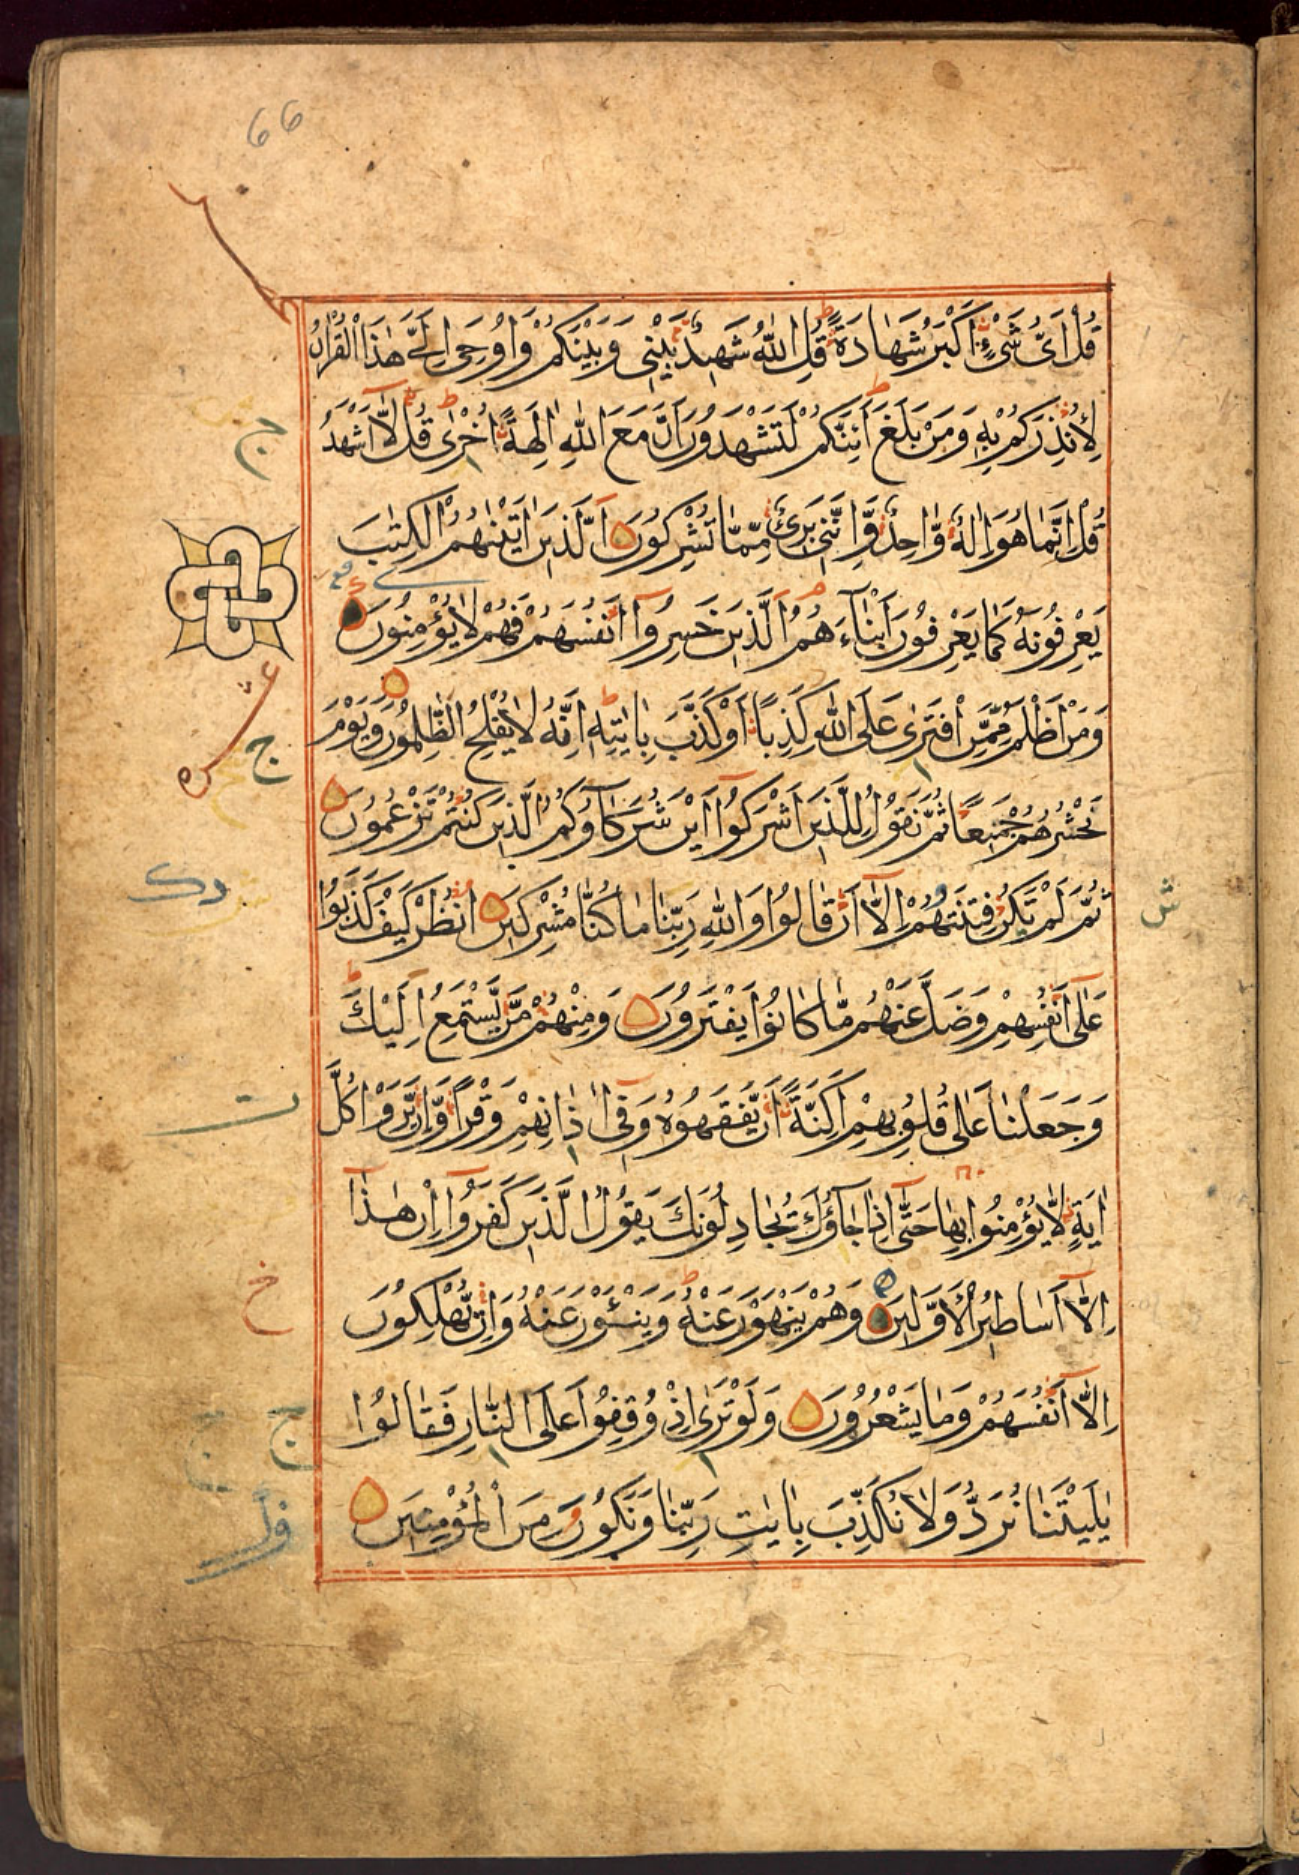 66
قُلْ اَیُّ شَیْءٍ اَكْبَرُ شَهَادَةً قُلِ اللّٰهُ شَهِیْدٌ بَیْنِیْ وَبَیْنَكُمْ وَاُوْحِیَ اِلَیَّ هٰذَا الْقُرْاٰنُ
لِاُنْذِرَكُمْ بِهٖ وَمَنْ بَلَغَ اَئِنَّكُمْ لَتَشْهَدُوْنَ اَنَّ مَعَ اللّٰهِ اٰلِهَةً اُخْرٰی قُلْ لَّا اَشْهَدُ
قُلْ اِنَّمَا هُوَ اِلٰهٌ وَّاحِدٌ وَّاِنَّنِیْ بَرِیْءٌ مِّمَّا تُشْرِكُوْنَ اَلَّذِیْنَ اٰتَیْنٰهُمُ الْكِتٰبَ
یَعْرِفُوْنَهٗ كَمَا یَعْرِفُوْنَ اَبْنَآءَهُمُ الَّذِیْنَ خَسِرُوْٓا اَنْفُسَهُمْ فَهُمْ لَا یُؤْمِنُوْنَ
وَمَنْ اَظْلَمُ مِمَّنِ افْتَرٰی عَلَی اللّٰهِ كَذِبًا اَوْ كَذَّبَ بِاٰیٰتِهٖ اِنَّهٗ لَا یُفْلِحُ الظّٰلِمُوْنَ وَیَوْمَ
نَحْشُرُهُمْ جَمِیْعًا ثُمَّ نَقُوْلُ لِلَّذِیْنَ اَشْرَكُوْٓا اَیْنَ شُرَكَآؤُكُمُ الَّذِیْنَ كُنْتُمْ تَزْعُمُوْنَ
ثُمَّ لَمْ تَكُنْ فِتْنَتُهُمْ اِلَّآ اَنْ قَالُوْا وَاللّٰهِ رَبِّنَا مَا كُنَّا مُشْرِكِیْنَ اُنْظُرْ كَیْفَ كَذَبُوْا
عَلٰٓی اَنْفُسِهِمْ وَضَلَّ عَنْهُمْ مَّا كَانُوْا یَفْتَرُوْنَ وَمِنْهُمْ مَّنْ یَّسْتَمِعُ اِلَیْكَ
وَجَعَلْنَا عَلٰی قُلُوْبِهِمْ اَكِنَّةً اَنْ یَّفْقَهُوْهُ وَفِیْٓ اٰذَانِهِمْ وَقْرًا وَّاِنْ یَّرَوْا كُلَّ
اٰیَةٍ لَّا یُؤْمِنُوْا بِهَا حَتّٰٓی اِذَا جَآؤُكَ یُجَادِلُوْنَكَ یَقُوْلُ الَّذِیْنَ كَفَرُوْٓا اِنْ هٰذَآ
اِلَّآ اَسَاطِیْرُ الْاَوَّلِیْنَ وَهُمْ یَنْهَوْنَ عَنْهُ وَیَنْـَٔوْنَ عَنْهُ وَاِنْ یُّهْلِكُوْنَ
اِلَّآ اَنْفُسَهُمْ وَمَا یَشْعُرُوْنَ وَلَوْ تَرٰٓی اِذْ وُقِفُوْا عَلَی النَّارِ فَقَالُوْا
یٰلَیْتَنَا نُرَدُّ وَلَا نُكَذِّبَ بِاٰیٰتِ رَبِّنَا وَنَكُوْنَ مِنَ الْمُؤْمِنِیْنَ